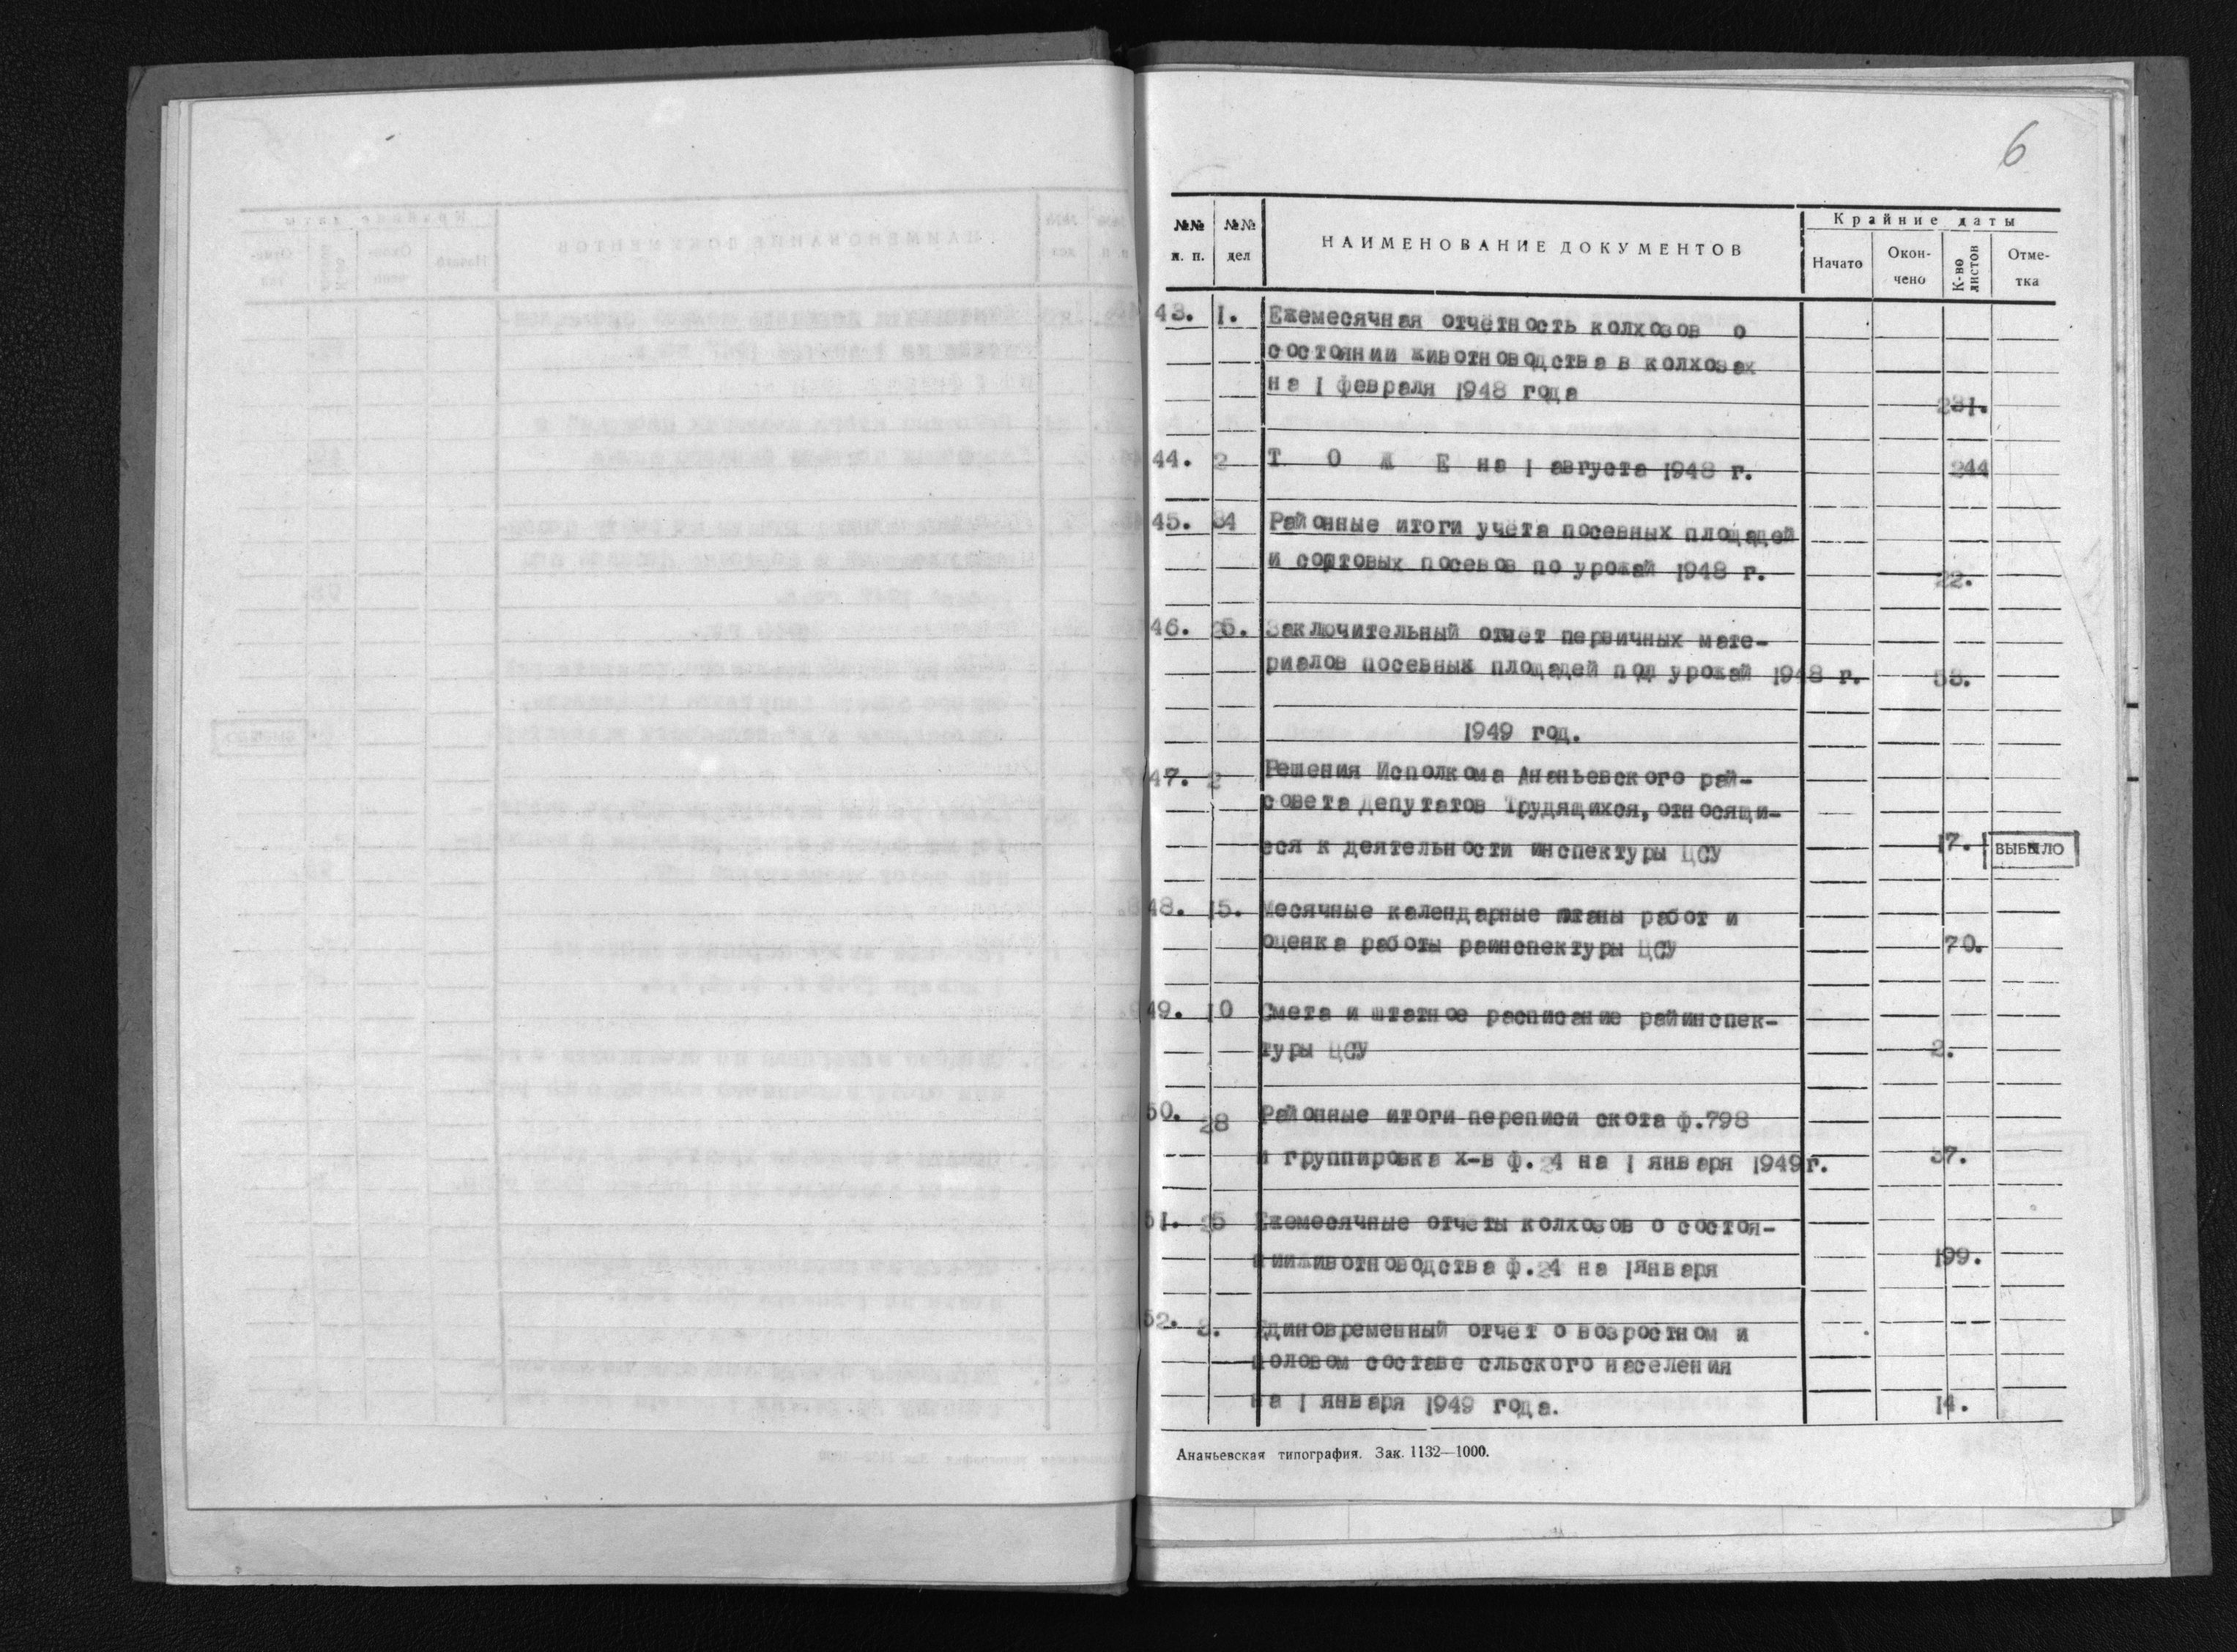 6
№№ п. п. №№ дел НАИМЕНОВАНИЕ ДОКУМЕНТОВ Крайние даты
Начато Окон-чено К-во листов Отме-тка
43. 1. Ежемесячная отчётность колхозов о
состоянии животноводства в колхозах
на 1 февраля 1948 года
231.
44. 2 Т О Ж Е на 1 августа 1948 г. 244
45. 34 Районные итоги учёта посевных площадей
и сортовых посевов по урожай 1948 г. 22.
46. 25. Заключительный отчет первичных мате-
риалов посевных площадей под урожай 1948 г. 53.
1949 год.
47. 2 Решения Исполкома Ананьевского рай-
совета депутатов Трудящихся, относящи-
еся к деятельности инспектуры ЦСУ 17. ВЫБЫЛО
48. 15. месячные календарные планы работ и
оценка работы раинспектуры ЦСУ 70.
49. 10 Смета и штатное расписание райинспек-
туры ЦСУ 2.
50. 28 Районные итоги переписи скота ф.798
и группировка х-в ф. 24 на 1 января 1949г. 37.
51. 25 Ежемесячные отчеты колхозов о состоя-
нииживотноводства ф.24 на 1января 199.
52. 3. Единовременный отчет о возростном и
половом составе сльского населения
на 1 января 1949 года. 14.
Ананьевская типография. Зак. 1132—1000.